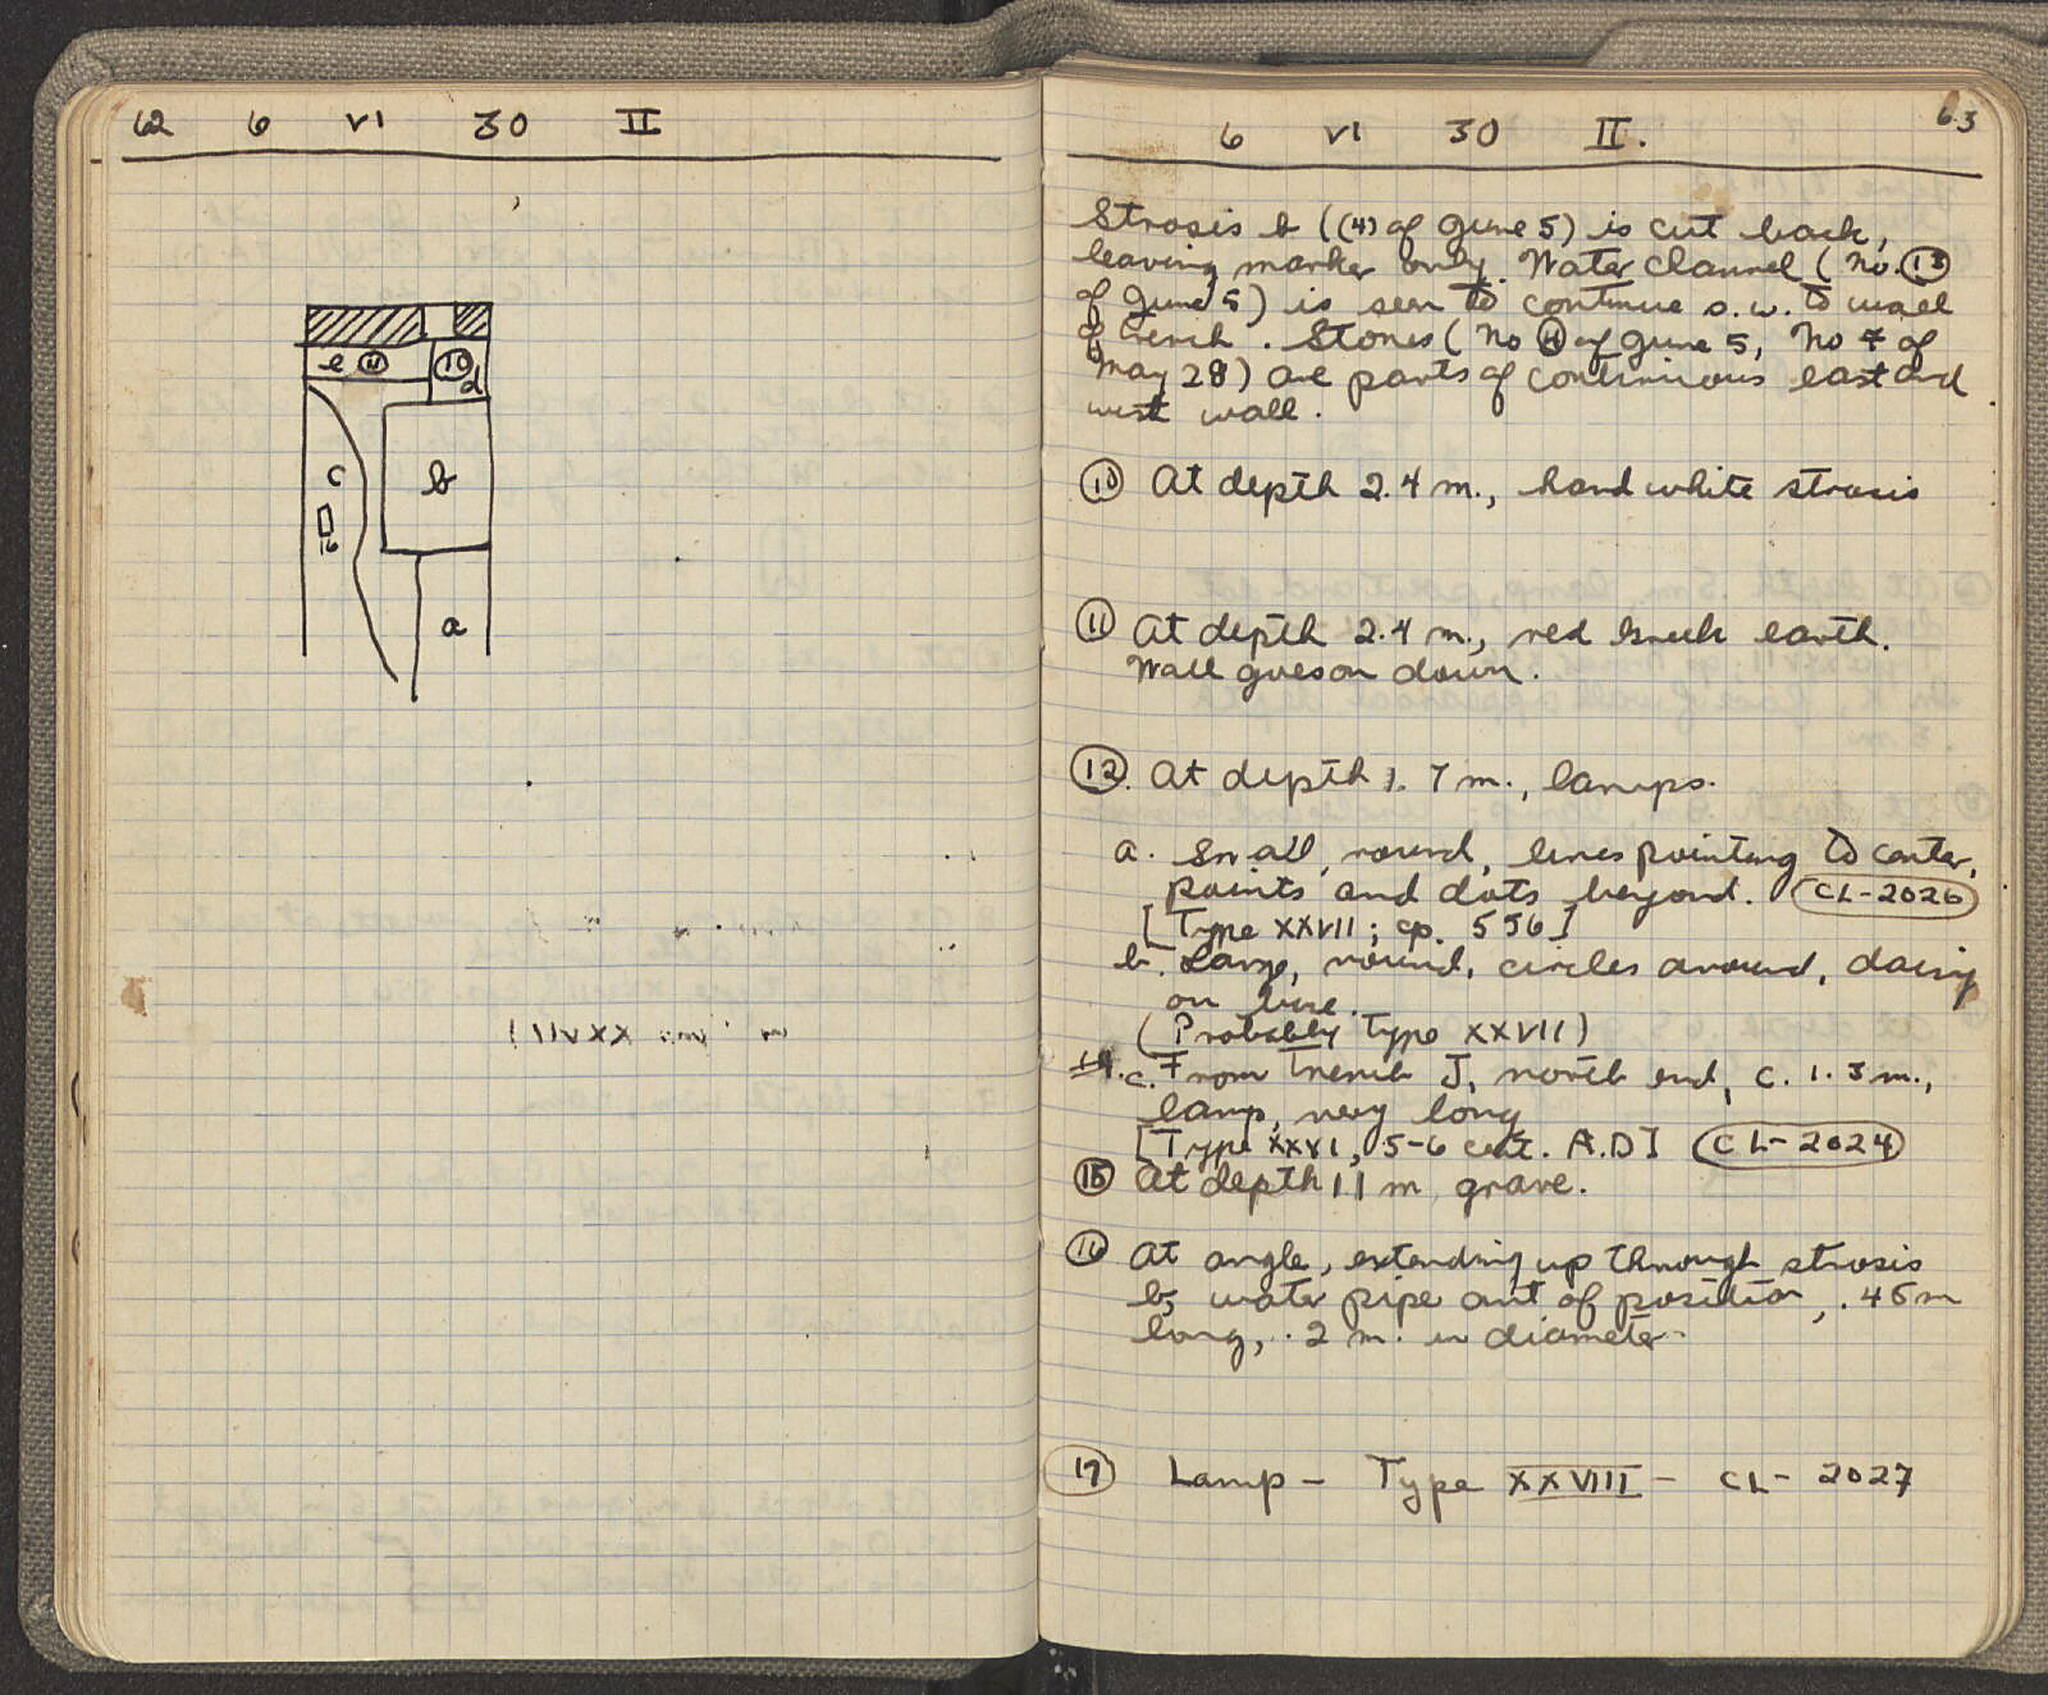 62 6 VI 30 II
e 11
10
d
c
b
16
a
63
6 VI 30 II.
Strosis b ((4) of June 5) is cut back,
leaving marker only. Water channel (No. 13
of June 5) is seen to continue s.w. to wall
of trench. Stones (No 11 of June 5, No 7 of
May 28) are parts of continuous east and
west wall.
10 At depth 2.4 m., hard white strosis
11 At depth 2.4 m., red brick earth.
Wall goes on down.
12. At depth 1.7 m., lamps.
a. Small, round, lines pointing to center,
points and dots beyond. CL-2026
[Type XXVII; cp. 556]
b. Large, round, circles around, daisy
on base.
(Probably Type XXVII)
14. c. From trench J, north end, c. 1.3 m.,
lamp, very long
[Type XXVI, 5-6 cent. A.D] CL-2024
15 At depth 1.1 m grave.
16 At angle, extending up through strosis
b, water pipe out of position, .45 m
long, .2 m. in diameter.
17 Lamp - Type XXVIII - CL-2027